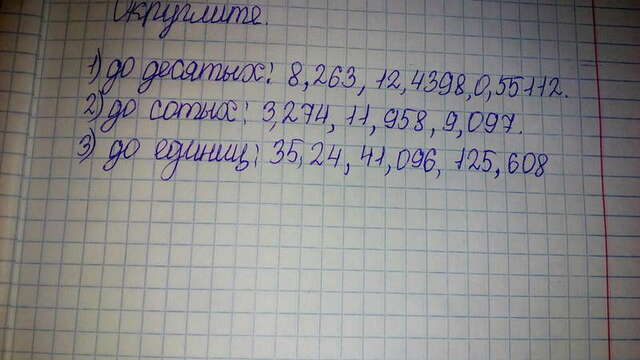 Округлите.
1) до десятых: 8,263, 12,4398, 0,55112.
2) до сотых: 3,274, 11,958, 9,097.
3) до единиц: 35,24, 41,096, 125,608